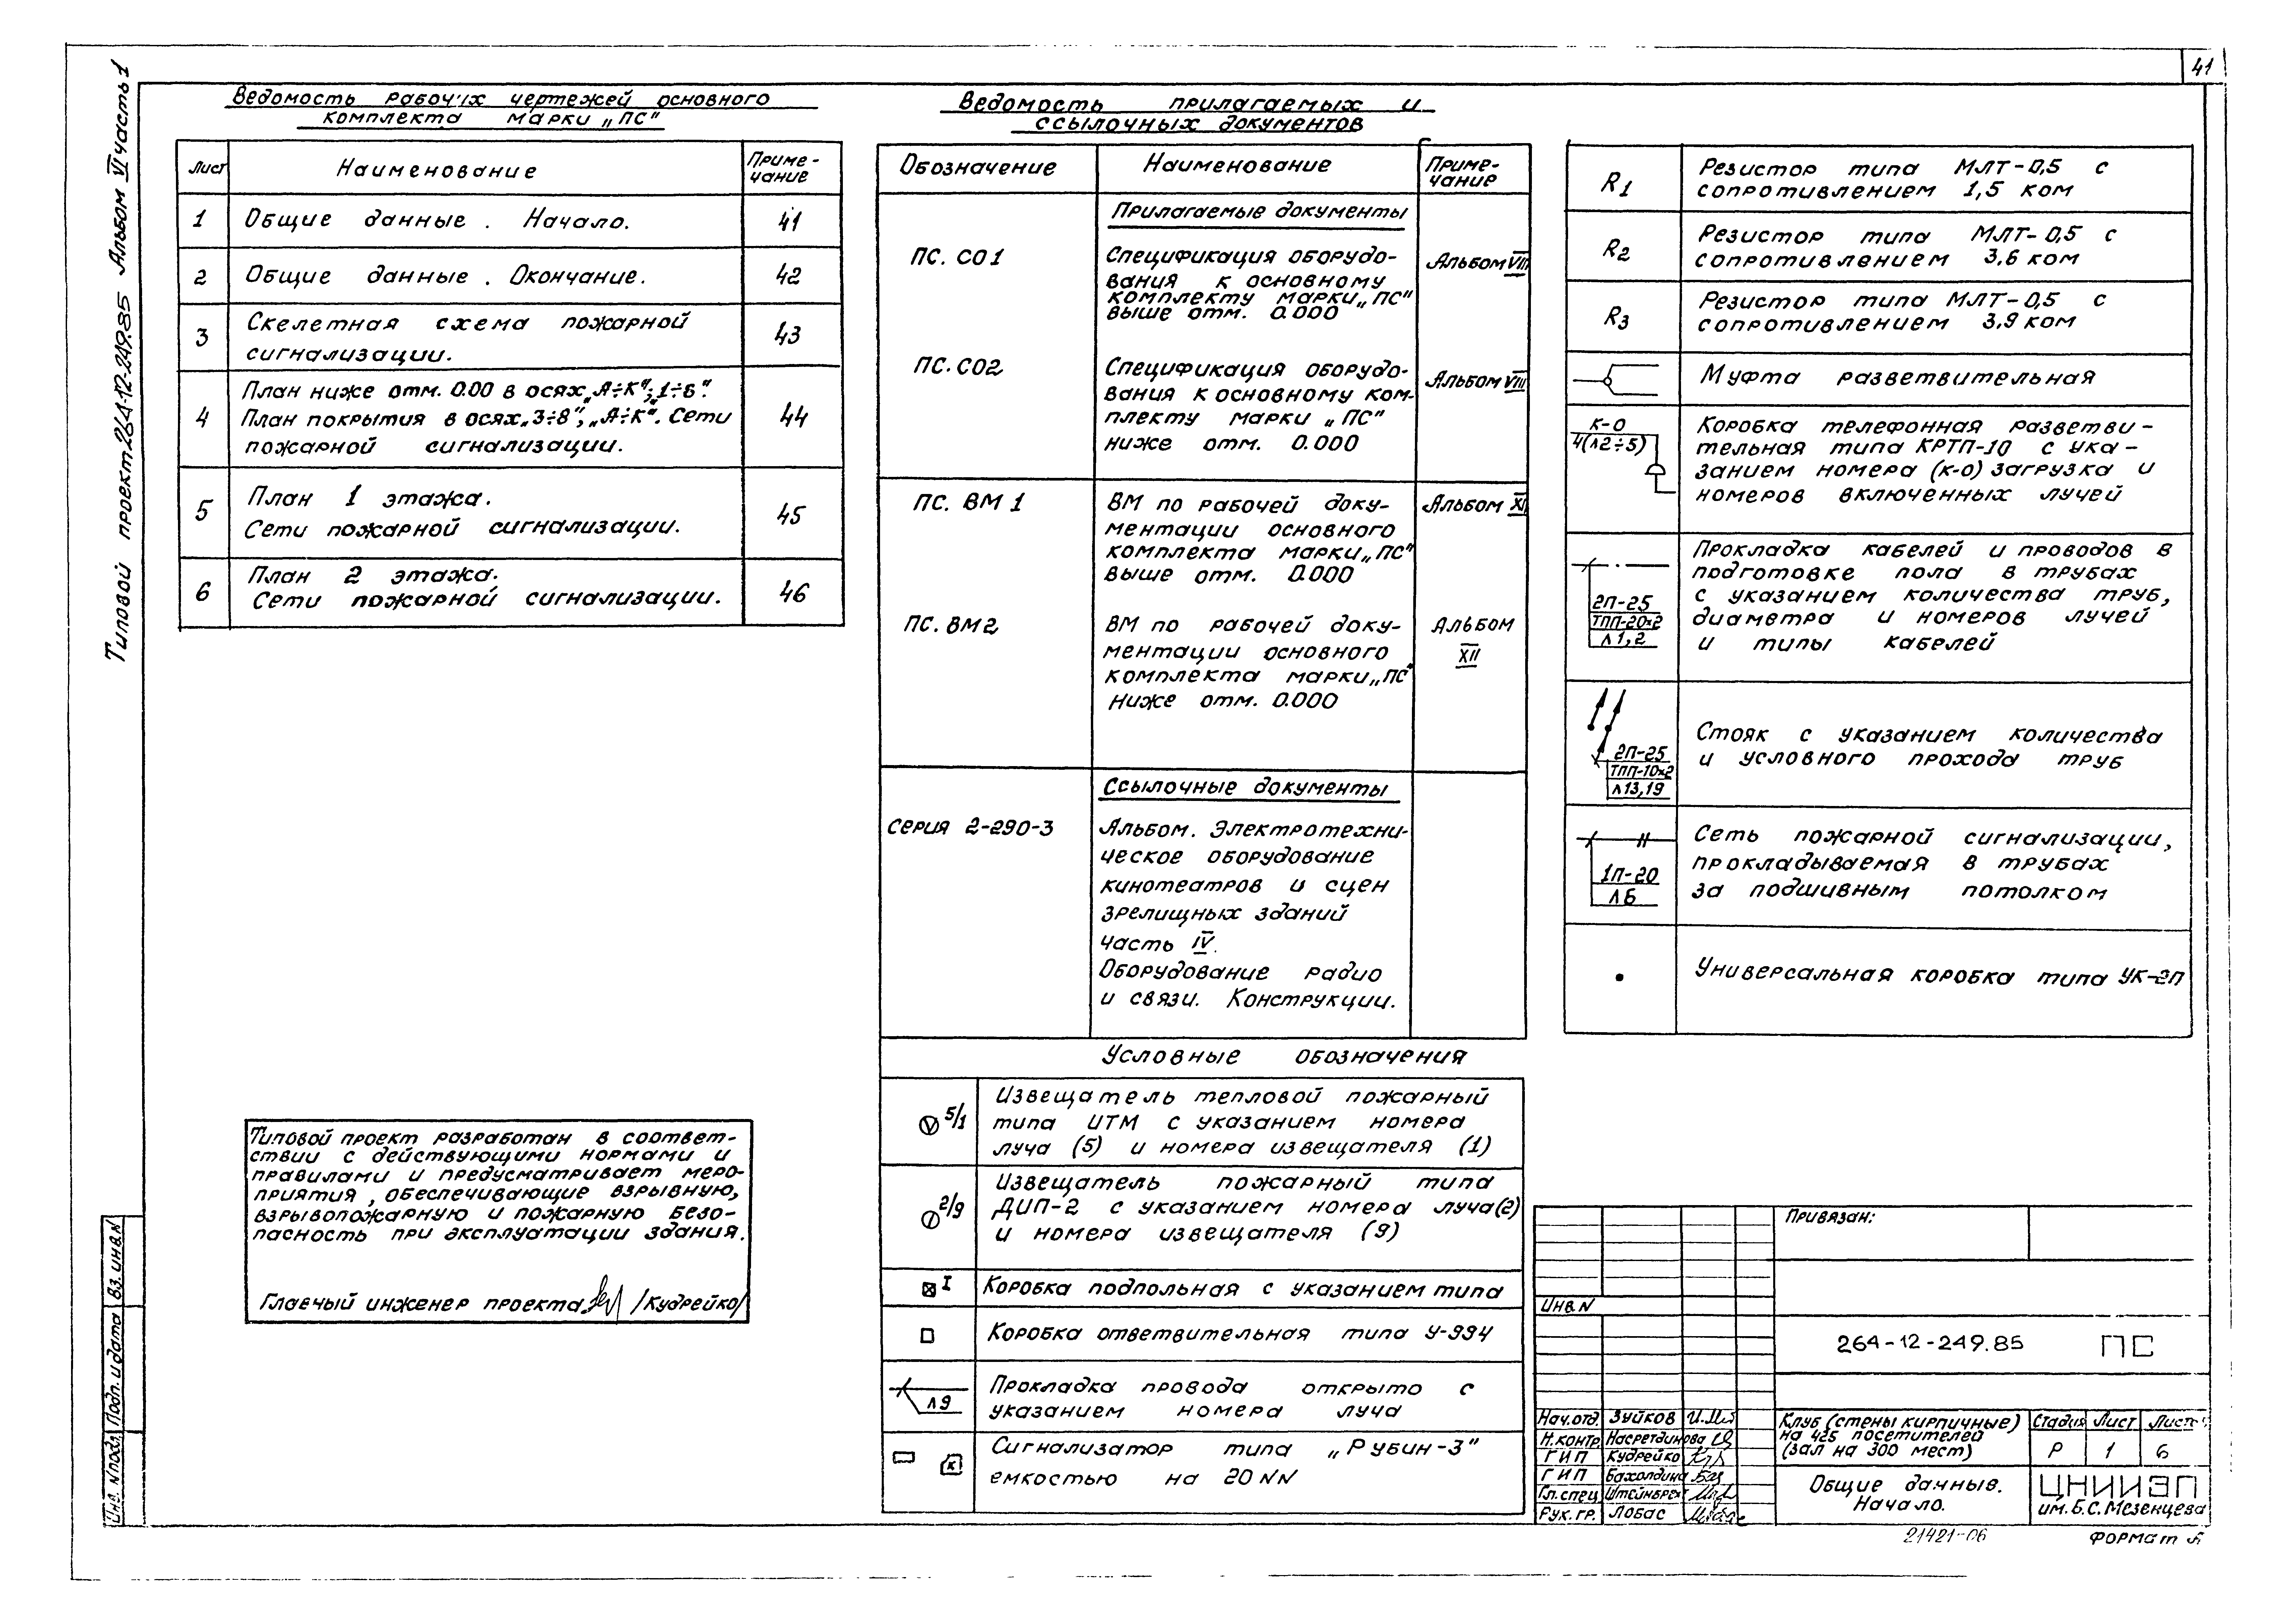 41
Типовой проект 264-12-249.85 Альбом VI часть 1
Ведомость рабочих чертежей основного
комплекта марки „ПС"
Лист Наименование Приме-
чание
1 Общие данные. Начало. 41
2 Общие данные. Окончание. 42
3 Скелетная схема пожарной
сигнализации. 43
4 План ниже отм. 0.00 в осях „А÷К"; „1÷6".
План покрытия в осях „3÷8", „А÷К". Сети 44
пожарной сигнализации.
5 План 1 этажа.
Сети пожарной сигнализации. 45
6 План 2 этажа.
Сети пожарной сигнализации. 46
Типовой проект разработан в соответ-
ствии с действующими нормами и
правилами и предусматривает меро-
приятия, обеспечивающие взрывную,
взрывопожарную и пожарную безо-
пасность при эксплуатации здания.
Главный инженер проекта /Кудрейко/
Ведомость прилагаемых и
ссылочных документов
Обозначение Наименование Приме-
чание
Прилагаемые документы
ПС. СО1 Спецификация оборудо- Альбом VIII
вания к основному
комплекту марки „ПС"
выше отм. 0.000
ПС. СО2 Спецификация оборудо- Альбом VIII
вания к основному ком-
плекту марки „ПС"
ниже отм. 0.000
ПС. ВМ 1 ВМ по рабочей доку- Альбом XI
ментации основного
комплекта марки „ПС"
выше отм. 0.000
ПС. ВМ2 ВМ по рабочей доку- Альбом
ментации основного XII
комплекта марки „ПС"
ниже отм. 0.000
Ссылочные документы
Серия 2-290-3 Альбом. Электротехни-
ческое оборудование
кинотеатров и сцен
зрелищных зданий
часть IV.
Оборудование радио
и связи. Конструкции.
Условные обозначения
5/1 Извещатель тепловой пожарный
типа ИТМ с указанием номера
луча (5) и номера извещателя (1)
2/9 Извещатель пожарный типа
ДИП-2 с указанием номера луча (2)
и номера извещателя (9)
I Коробка подпольная с указанием типа
Коробка ответвительная типа У-994
л9 Прокладка провода открыто с
указанием номера луча
к Сигнализатор типа „Рубин-3"
емкостью на 20 NN
R1 Резистор типа МЛТ-0,5 с
сопротивлением 1,5 ком
R2 Резистор типа МЛТ-0,5 с
сопротивлением 3,6 ком
R3 Резистор типа МЛТ-0,5 с
сопротивлением 3,9 ком
Муфта разветвительная
К-0 4(л2÷5) Коробка телефонная разветви-
тельная типа КРТП-10 с ука-
занием номера (к-0) загрузка и
номеров включенных лучей
Прокладка кабелей и проводов в
подготовке пола в трубах
2П-25 с указанием количества труб,
ТПП-20х2 диаметра и номеров лучей
л1,2 и типы кабелей
Стояк с указанием количества
2П-25 и условного прохода труб
ТПП-10х2
л13,19
Сеть пожарной сигнализации,
1П-20 прокладываемая в трубах
л6 за подшивным потолком
Универсальная коробка типа УК-2П
Привязан:
Инв. N
264-12-249.85 ПС
Нач. отд. Зуйков
Н. контр. Насретдинова
ГИП Кудрейко
ГИП Бахолдина
Гл. спец. Штейнбрех
Рук. гр. Лобас
Клуб (стены кирпичные)
на 425 посетителей
(зал на 300 мест)
Стадия Лист Листов
Р 1 6
Общие данные.
Начало.
ЦНИИЭП
им. Б.С. Мезенцева
21421-06 Формат А
Инв. N подл. Подп. и дата Вз. инв. N